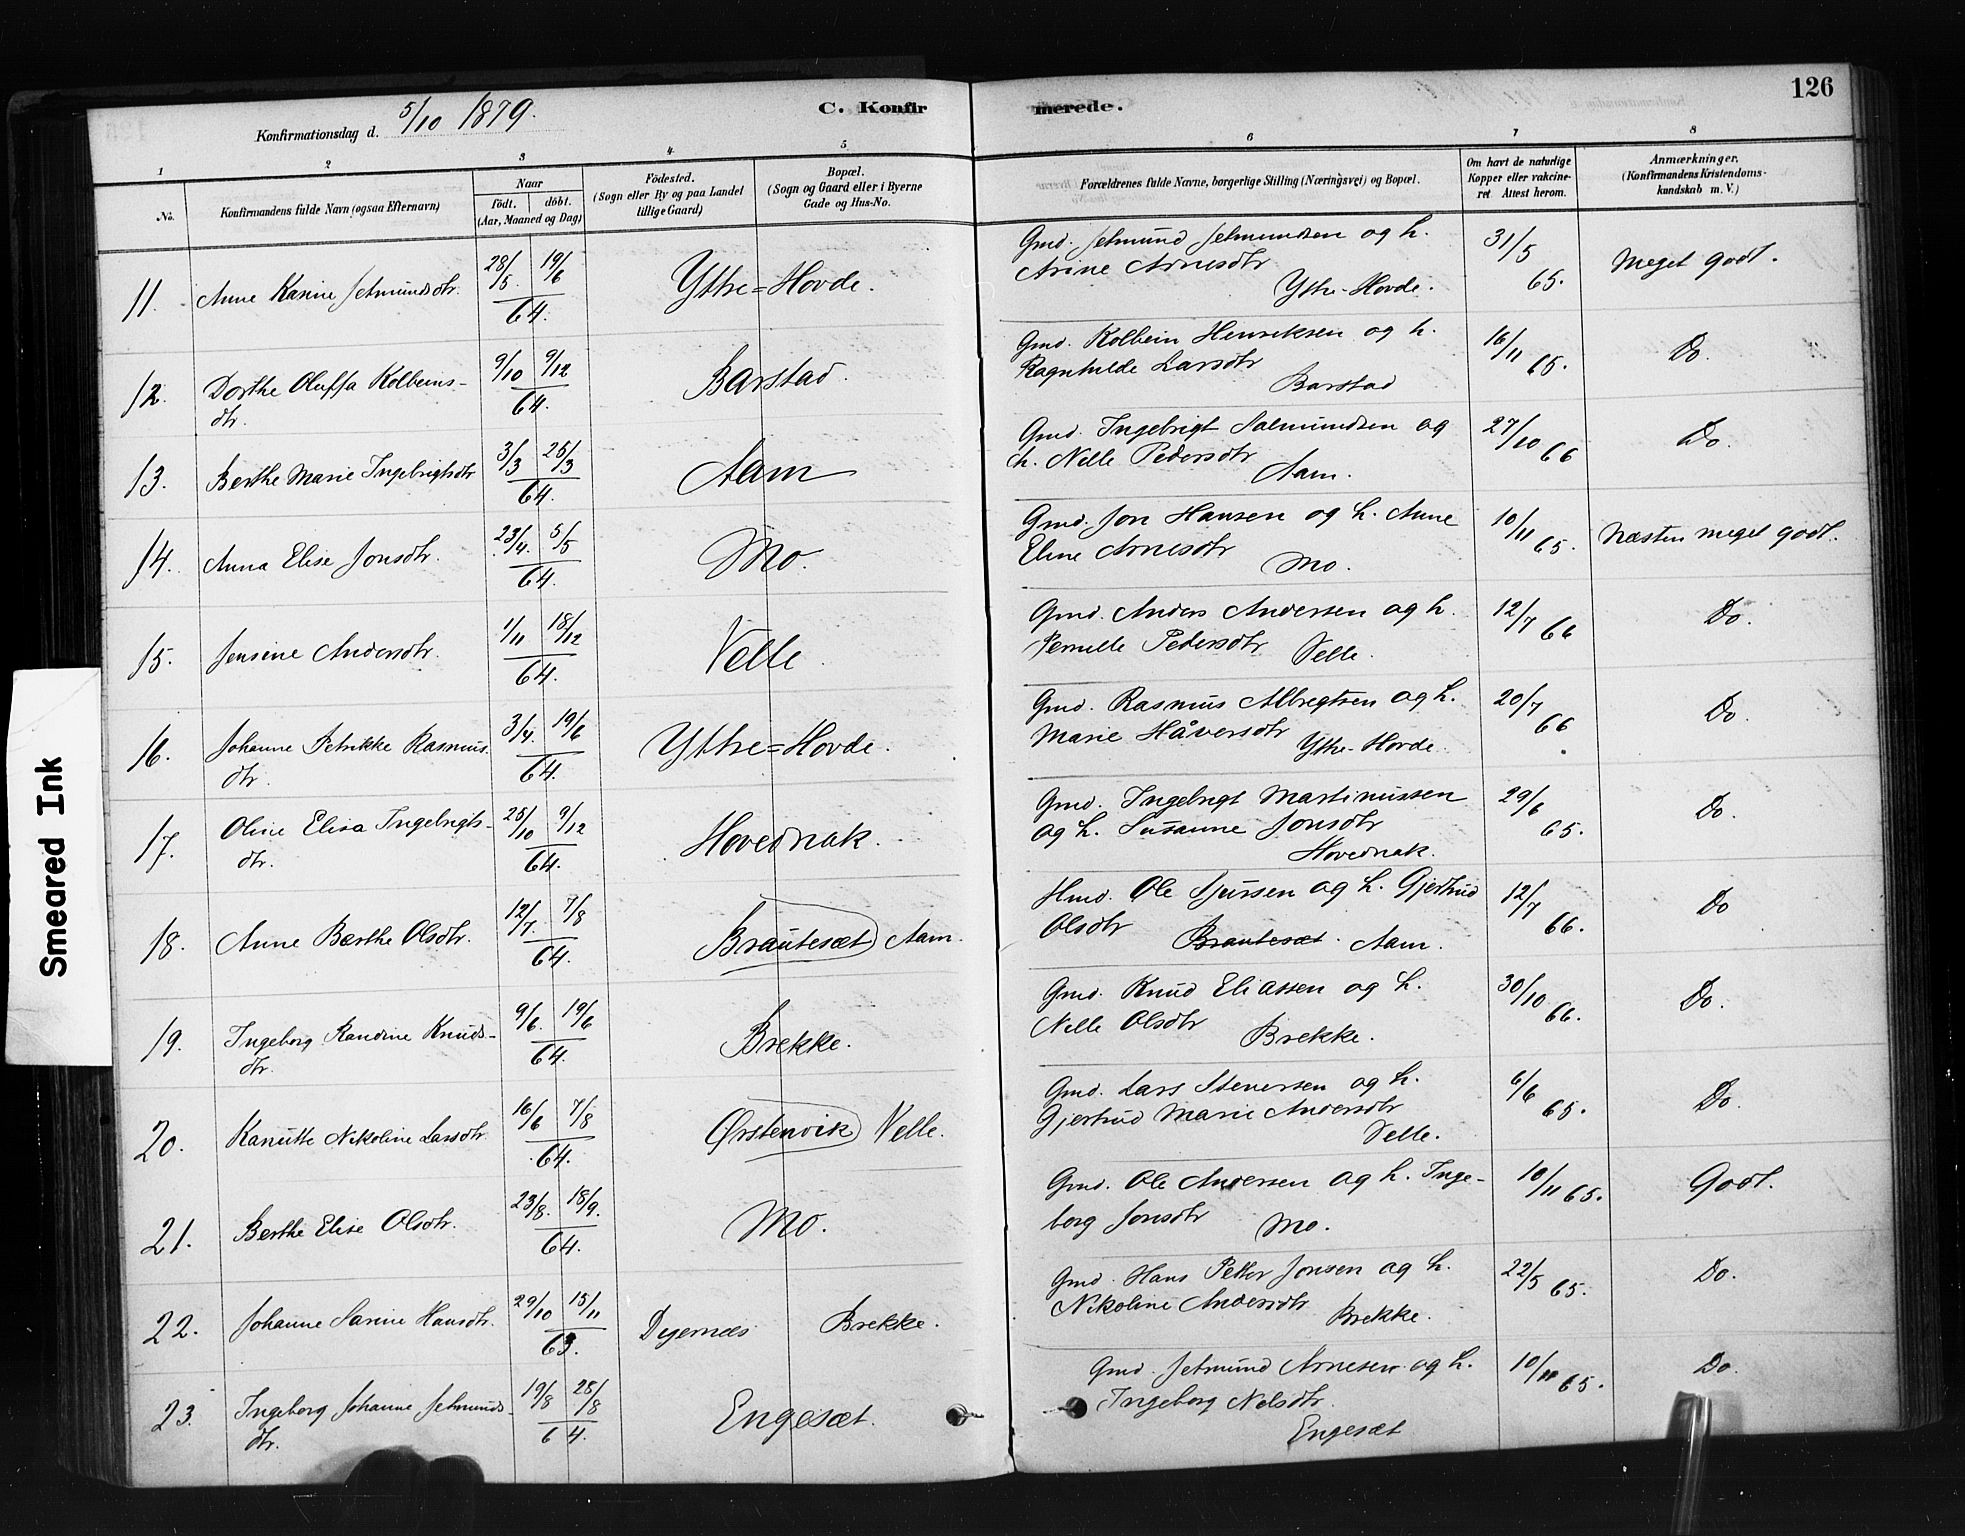 126
C. Konfirmerede.
Konfirmationsdag d. 5/10 1879.
1 2 3 4 5 6 7 8
No.
Konfirmandens fulde Navn (ogsaa Efternavn)
Naar
födt. döbt.
(Aar, Maaned og Dag)
Födested.
(Sogn eller By og paa Landet
tillige Gaard)
Bopæl.
(Sogn og Gaard eller i Byerne
Gade og Hus-No.
Forældrenes fulde Navne, borgerlige Stilling (Næringsvei) og Bopæl.
Om havt de naturlige
Kopper eller vakcine-
ret Attest herom.
Anmærkninger.
(Konfirmandens Kristendoms-
kundskab m. V.)
11. Anne Karine Jetmundsdtr. 28/5 19/6 64. Ytre=Hovde.
Gmd. Jetmund Jetmundsen og h.
Arine Arnesdtr
Ytre-Hovde.
31/5 65. Meget godt.
12. Dorthe Oluffa Kolbeins-
dtr. 9/10 9/12 64. Barstad.
Gmd. Kolbein Henriksen og h.
Ragnhilde Larsdtr
Barstad
16/11 65. Do.
13. Berthe Marie Ingebrigtsdtr 3/3 25/3 64. Aam
Gmd. Ingebrigt Salmundsen og
h. Nelle Pedersdtr
Aam.
27/10 66 Do.
14. Anna Elise Jonsdtr. 23/4. 5/5 64. Mo.
Gmd. Jon Hansen og h. Anne
Eline Arnesdtr
Mo.
10/11 65. Næsten meget godt.
15. Jensine Andersdtr. 1/11 18/12 64. Velle.
Gmd. Anders Andersen og h.
Pernille Pedersdtr Velle.
12/7 66 Do.
16. Johanne Petrikke Rasmus-
dtr. 3/4. 19/6 64. Ytre=Hovde.
Gmd. Rasmus Albregtsen og h.
Marie Håversdtr Ytre-Hovde.
20/7 66 Do.
17. Oline Elisa Ingebrigts-
dtr. 25/10 9/12 64. Hovednak.
Gmd. Ingebrigt Martinussen
og h. Susanne Jonsdtr
Hovednak.
29/6 65. Do.
18. Anne Berthe Olsdtr. 12/7. 7/8 64. Brautesæt Aam.
Hmd. Ole Sjursen og h. Gjertrud
Olsdtr Brautesæt. Aam.
12/7 66. Do
19. Ingeborg Randine Knuds-
dtr. 9/6. 19/6 64. Brekke.
Gmd. Knud Eliassen og h.
Nelle Olsdtr Brekke.
30/10 66. Do.
20. Kanutte Nikoline Larsdtr. 16/6 7/8 64. Ørstenvik Velle.
Gmd. Lars Steversen og h.
Gjertrud Marie Andersdtr
Velle.
6/6 65. Do.
21. Berthe Elise Olsdtr. 23/8. 18/9. 64. Mo.
Gmd. Ole Andersen og h. Inge-
borg Jonsdtr Mo.
10/11 65. Godt.
22. Johanne Sarine Hansdtr. 29/10 15/11 63. Digernæs Brekke.
Gmd. Hans Petter Jonsen og h.
Nikoline Andersdtr Brekke.
22/5 65. Do.
23. Ingeborg Johanne Jetmunds-
dtr. 19/8 28/8 64. Engesæt.
Gmd. Jetmund Arnesen og h.
Ingeborg Nelsdtr.
Engesæt
10/11 65. Do.
Smeared Ink